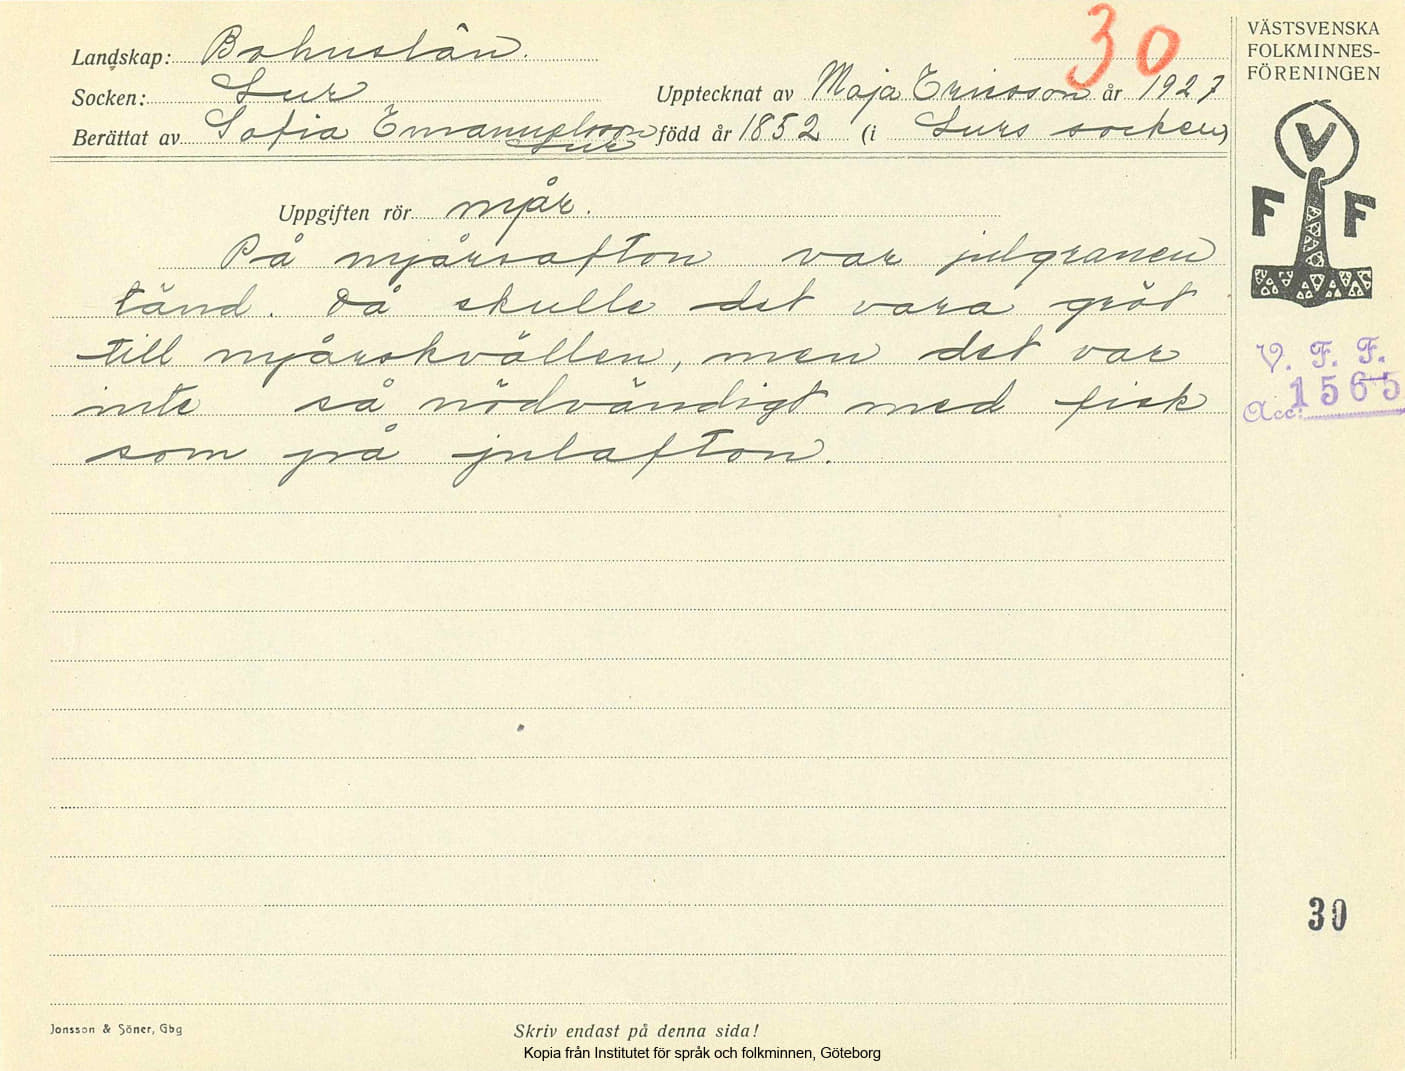 Landskap: Bohuslän.
Socken: Lur
Berättat av Sofia Emanuelsson
Lur
30
Upptecknat av Maja Ericsson år 1927
född år 1852 (i Lurs socken)
Uppgiften rör nyår.
På nyårsafton var julgranen
tänd. Då skulle det vara gröt
till nyårskvällen, men det var
inte så nödvändigt med fisk
som på julafton.
VÄSTSVENSKA
FOLKMINNES-
FÖRENINGEN
V
F F
V. F. F.
Acc: 1565
30
Jonsson & Söner, Gbg
Skriv endast på denna sida!
Kopia från Institutet för språk och folkminnen, Göteborg